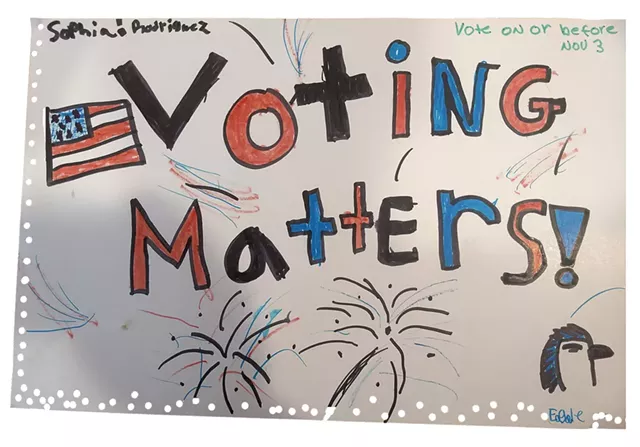 Sophia! Rodriguez
Vote oN or before
Nov 3
VOtiNG
MattErs!